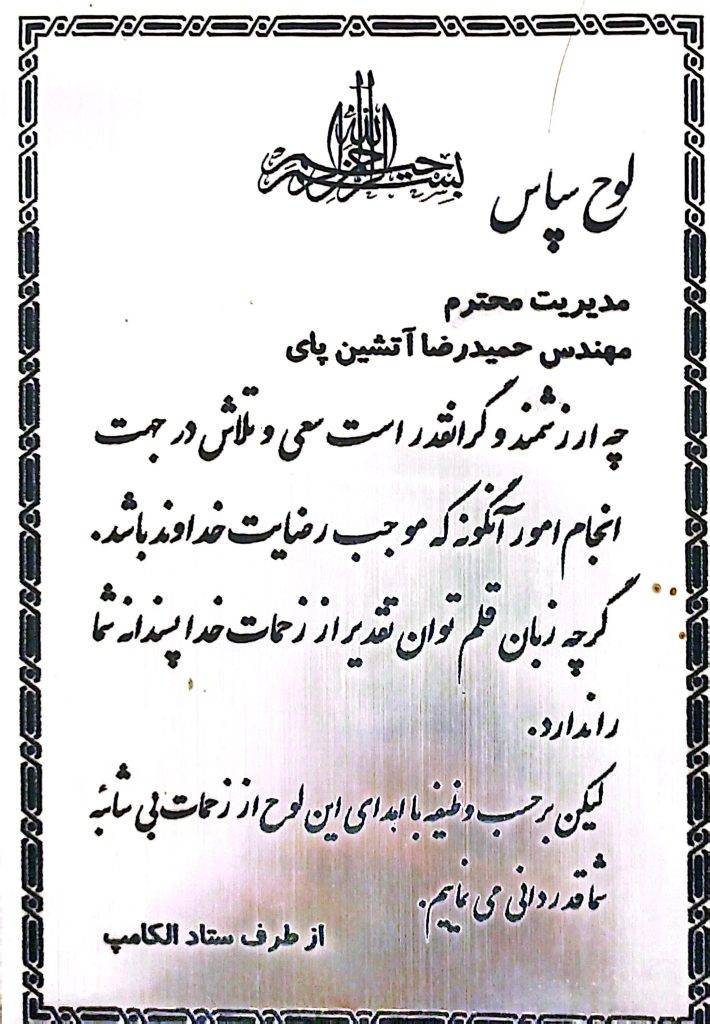 بسم الله الرحمن الرحیم
لوح سپاس
مدیریت محترم
مهندس حمیدرضا آتشین پای
چه ارزشمند و گرانقدر است سعی و تلاش در جهت
انجام امور آنگونه که موجب رضایت خداوند باشد.
گرچه زبان قلم توان تقدیر از زحمات خدا پسندانه شما
را ندارد.
لیکن بر حسب وظیفه با اهدای این لوح از زحمات بی شائبه
شما قدردانی می نماییم.
از طرف ستاد الکامپ